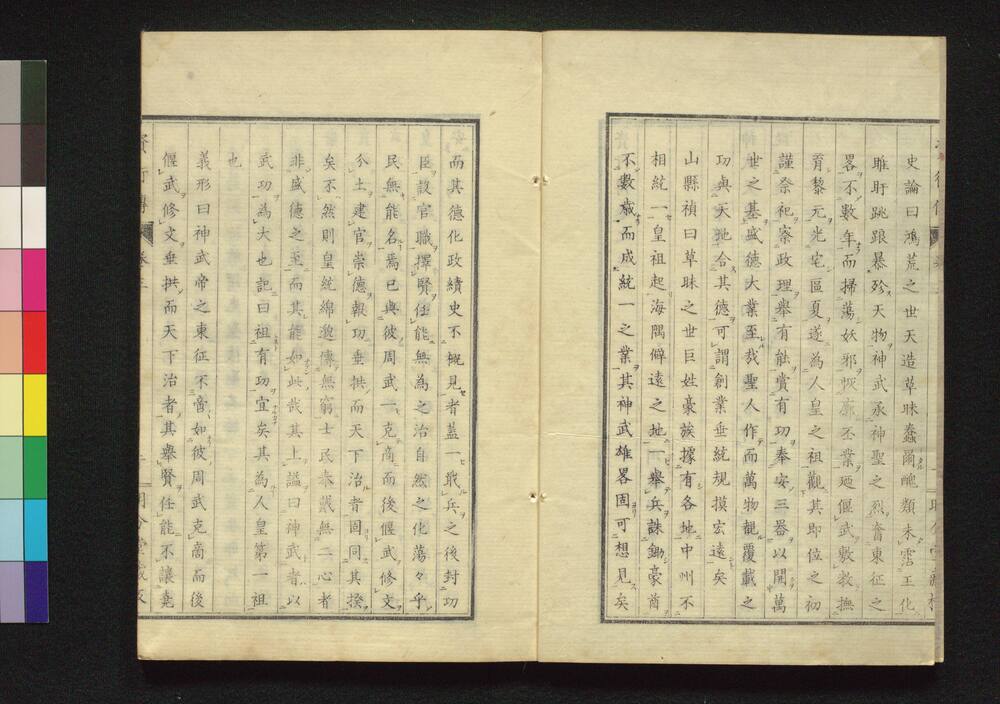 史論曰鴻荒之世天造草昧蠢爾醜類未霑王化
睢盱跳踉暴殄天物神武承神聖之烈奮東征之
畧不數年而掃蕩妖邪恢廓丕業廼偃武敷教撫
育黎元光宅區夏遂為人皇之祖觀其即位之初
謹祭祀寮政理擧有能賞有功奉安三器以開萬
世之基盛德大業至哉聖人作而萬物覩覆載之
功與天地合其德可謂創業垂統規摸宏遠矣
山縣禎曰草昧之世巨姓豪族據有各地中州不
相統一皇祖起海隅僻遠之地一擧兵誅鋤豪酋
不數歳而成統一之業其神武雄畧固可想見矣
而其德化政績史不概見者蓋一戢兵之後封功
臣設官職擇賢任能無為之治自然之化蕩々乎
民無能名焉已與彼周武一克商而後偃武修文
分土建官崇德報功垂拱而天下治者固同其揆
矣不然則皇統綿邈傳無窮士民奉戴無二心者
非盛德之至而其能如此哉其上謚曰神武者以
武功為大也記曰祖有功宜矣其為人皇第一祖
也
義形曰神武帝之東征不啻如彼周武克商而後
偃武修文垂拱而天下治者其擧賢任能不讓堯